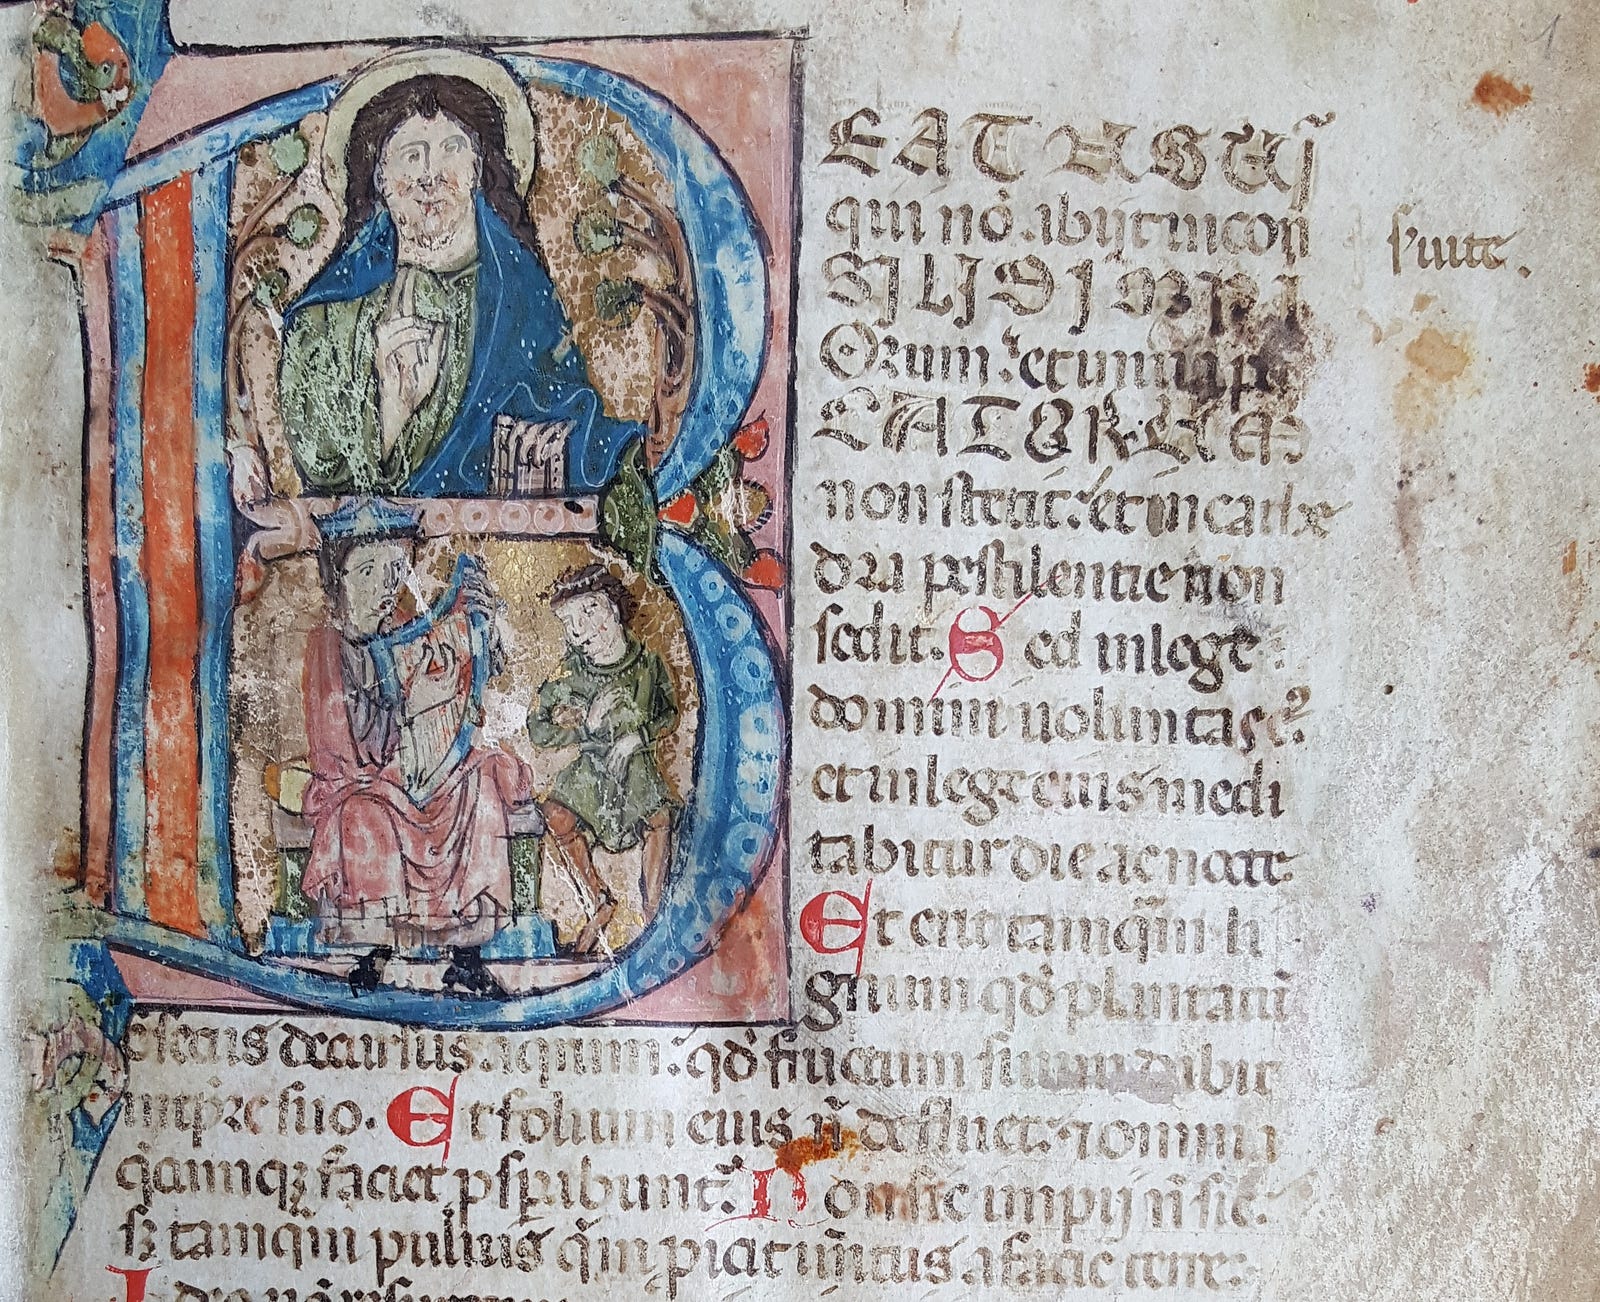 BEATUS UIR
qui nō abijt in con
SILIO IMPI
Orum: et in uia pec
CATORUM
non stetit: et in cathe
dra pestilentie non
sedit. Sed in lege
domini uoluntas eꝰ
et in lege eius medi
tabitur die ac nocte
Et erit tamqm̄ li
gnum qd̄ plantatū
ē secus decursus aquarum: qd̄ fructum suum dabit
in tp̄re suo. Et folium eius n̄ defluet: ⁊ omnia
q̄cumqꝫ faciet ꝓsꝑabunt᷑. Non sic impij n̄ sic:
sꝫ tamqm̄ puluis quem ꝓicit uentus a facie terre: